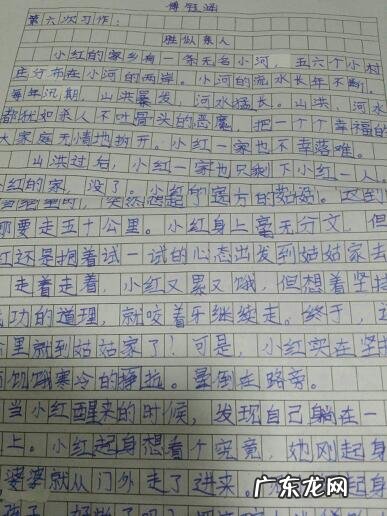 傅
第六次习作：
胜似亲人
小红的家乡有一条无名小河，五六个小村
庄分布在小河的两岸。小河的流水长年不断。
每年汛期，山洪暴发，河水猛长。山洪、河水
都犹如杀人不吐骨头的恶魔，把一个个幸福的
大家庭无情地拆开。小红一家也不幸落难。
山洪过后，小红一家也只剩下小红一人。
小红的家，没了。小红的远方的姑姑。
突然想起
都要走五十公里。小红身上毫无分文，但
红还是抱着试一试的心态出发到姑姑家去
走着走着，小红又累又饿，但想着坚持
成功的道理，就咬着牙继续走。终于，
里就到姑姑家了！可是，小红实在坚持
饥饿寒冷的挣扎。晕倒在路旁。
当小红醒来的时候，发现自己躺在一
上。小红起身想看个究竟，她刚起身
婆婆就从门外走了进来。
广东龙网